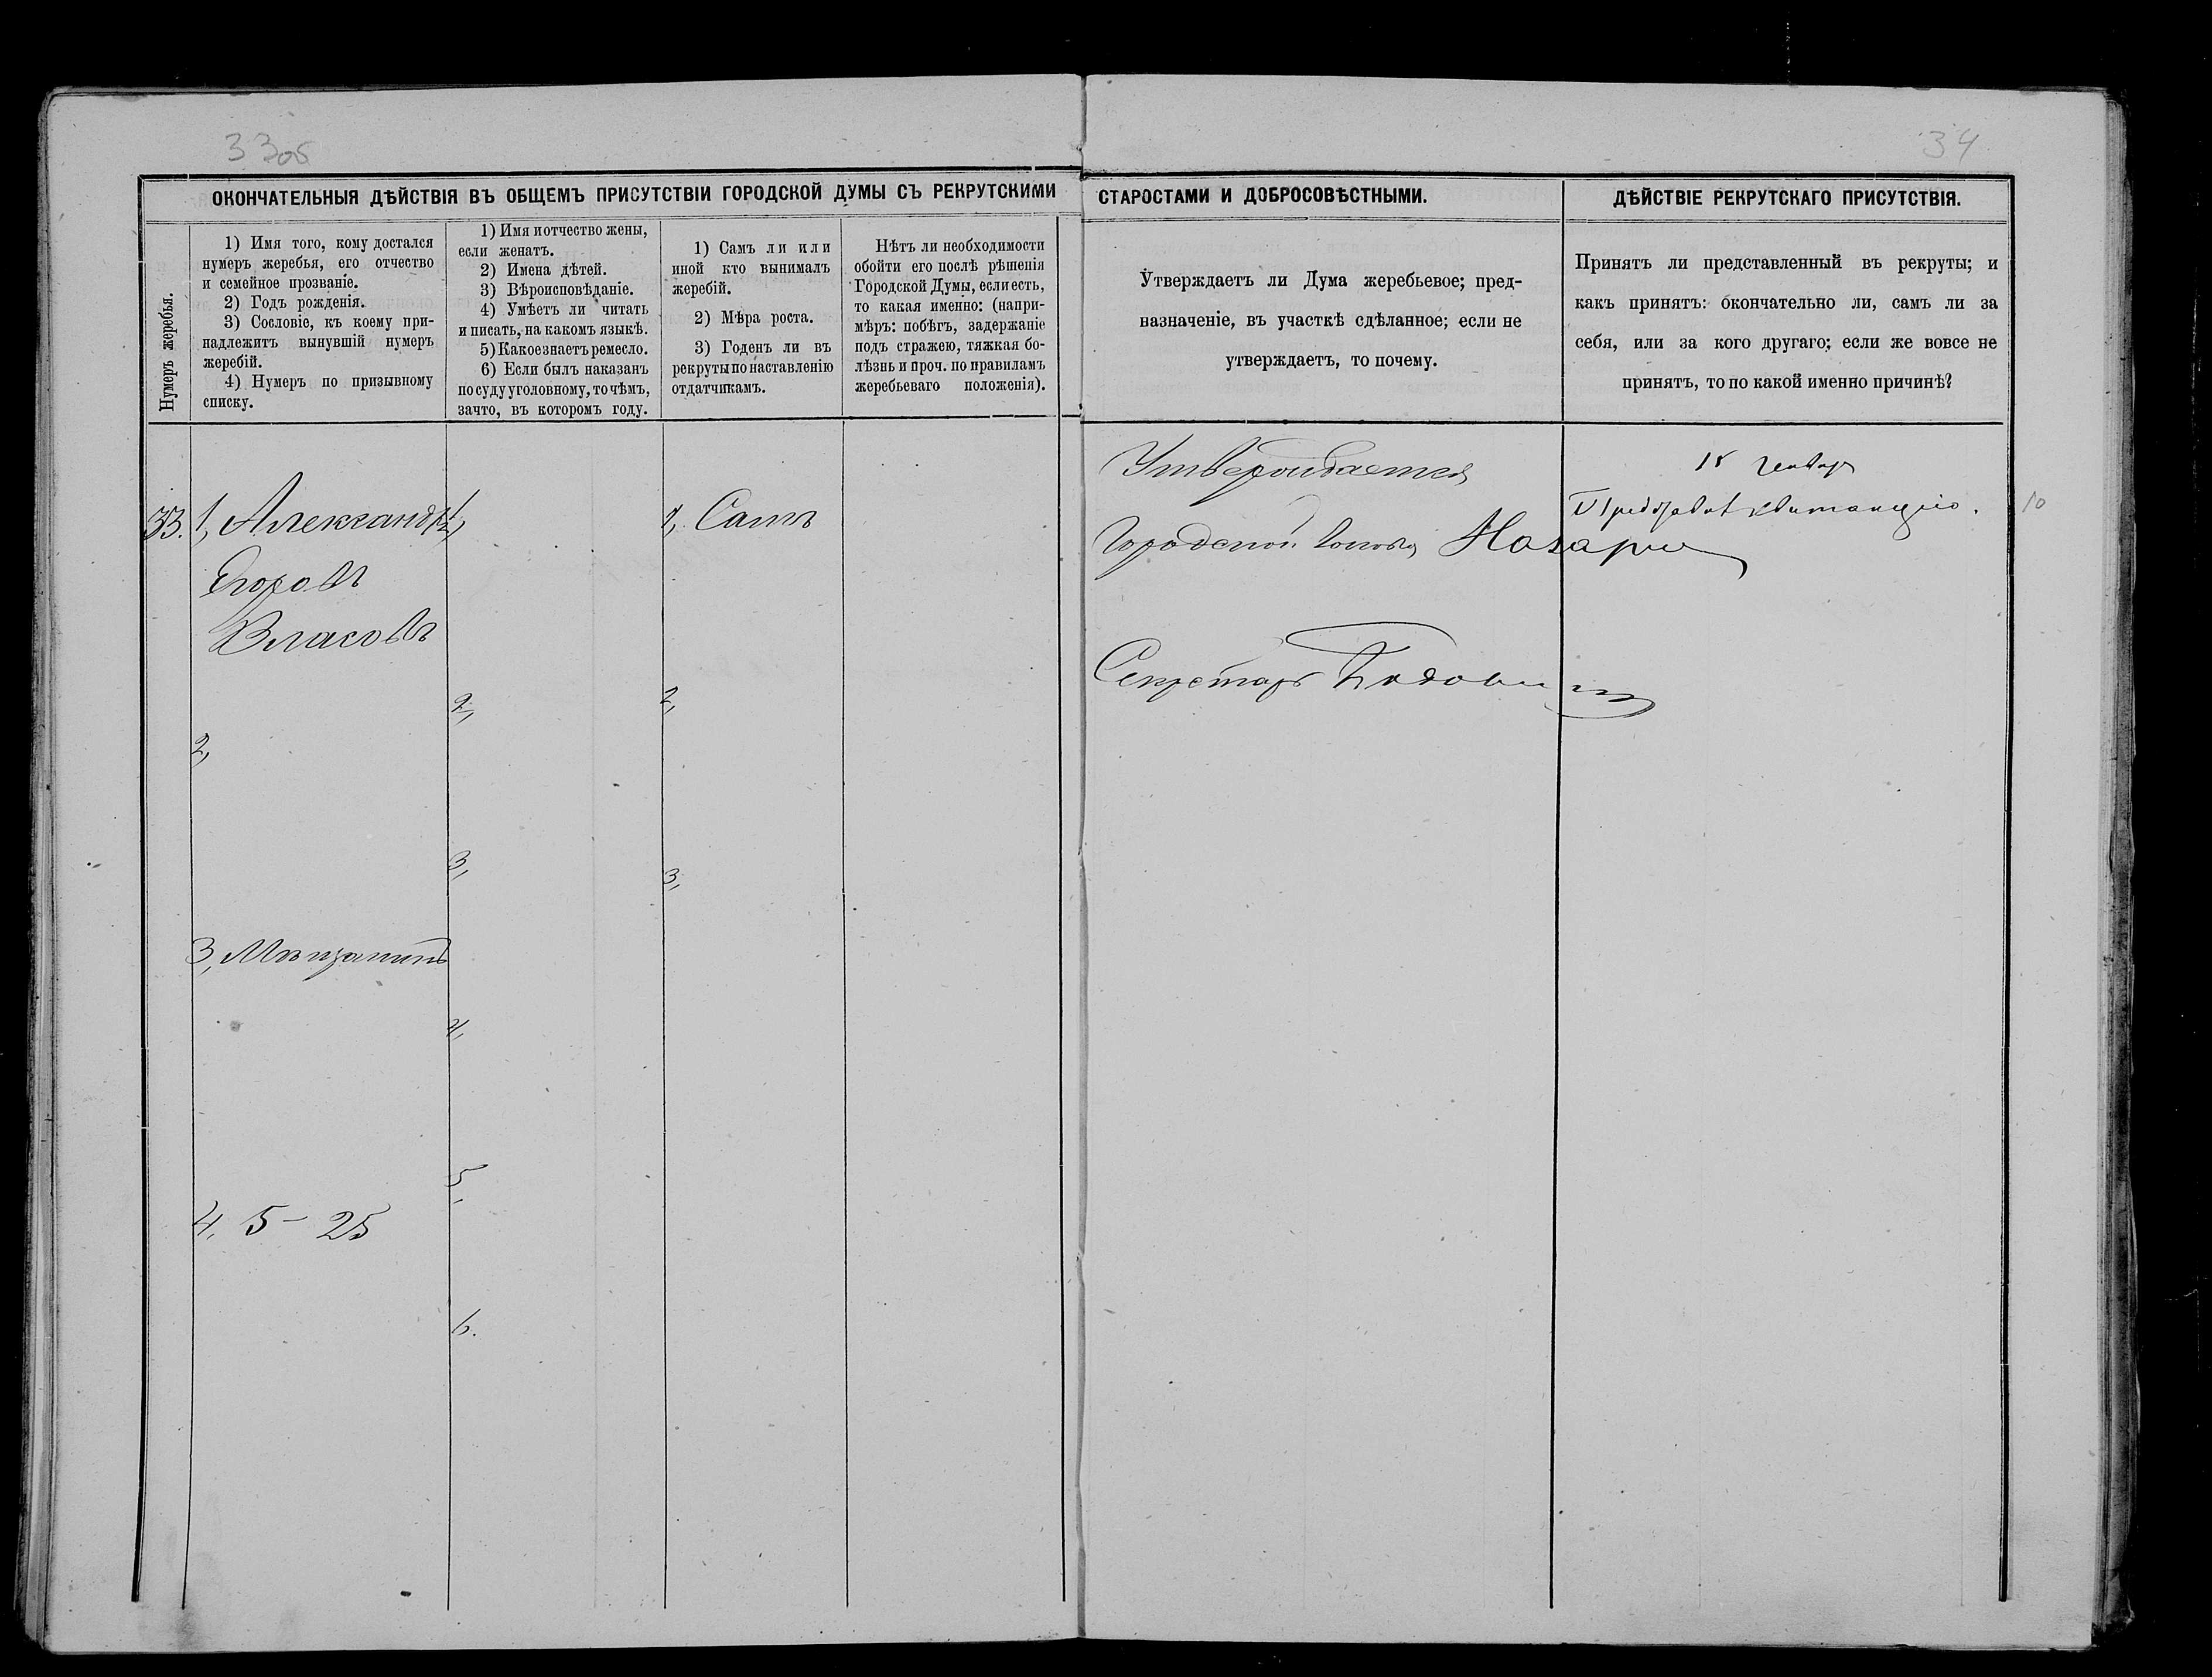 33об
34
ОКОНЧАТЕЛЬНЫЯ ДѢЙСТВІЯ ВЪ ОБЩЕМЪ ПРИСУТСТВІИ ГОРОДСКОЙ ДУМЫ СЪ РЕКРУТСКИМИ СТАРОСТАМИ И ДОБРОСОВѢСТНЫМИ.
ДѢЙСТВІЕ РЕКРУТСКАГО ПРИСУТСТВІЯ.
Нумеръ жеребья.
1) Имя того, кому достался
нумеръ жеребья, его отчество
и семейное прозваніе.
2) Годъ рожденія.
3) Сословіе, къ коему при-
надлежитъ вынувшій нумеръ
жеребій.
4) Нумеръ по призывному
списку.
1) Имя и отчество жены,
если женатъ.
2) Имена дѣтей.
3) Вѣроисповѣданіе.
4) Умѣетъ ли читать
и писать, на какомъ языкѣ.
5) Какое знаетъ ремесло.
6) Если былъ наказанъ
по суду уголовному, то чѣмъ,
за что, въ которомъ году.
1) Самъ ли или
иной кто вынималъ
жеребій.
2) Мѣра роста.
3) Годенъ ли въ
рекруты по наставленію
отдатчикамъ.
Нѣтъ ли необходимости
обойти его послѣ рѣшенія
Городской Думы, если есть,
то какая именно: (напри-
мѣръ: побѣгъ, задержаніе
подъ стражею, тяжкая бо-
лѣзнь и проч. по правиламъ
жеребьеваго положенія).
Утверждаетъ ли Дума жеребьевое; пред-
назначеніе, въ участкѣ сдѣланное; если не
утверждаетъ, то почему.
Принятъ ли представленный въ рекруты; и
какъ принятъ: окончательно ли, самъ ли за
себя, или за кого другаго; если же вовсе не
принятъ, то по какой именно причинѣ?
33.
1, Александръ
Егоровъ
Власовъ
2,
3, Мѣщанинъ
4, 5 - 25
1,
2,
3,
4,
5,
6.
1, Самъ
2,
3,
Утверждается
Городской голова
Секретарь
квитанцію.
10